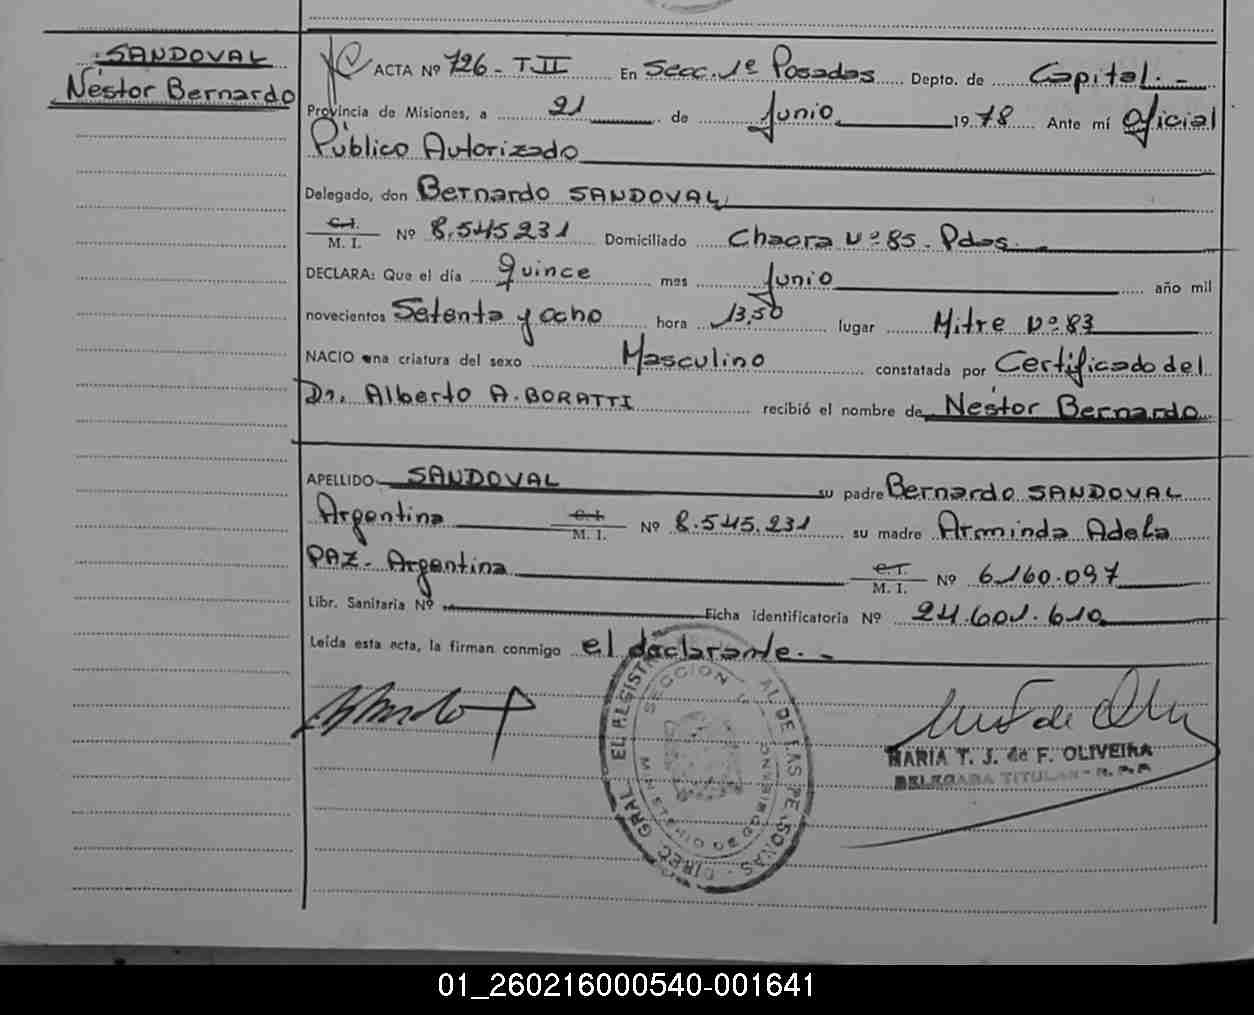 SANDOVAL
Néstor Bernardo
ACTA Nº 726 - T II En Secc. 1ª Posadas Depto. de Capital. -
Provincia de Misiones, a 21 de Junio 1978 Ante mí Oficial
Público Autorizado
Delegado, don Bernardo SANDOVAL
C.I.
M. I. Nº 8.545.231 Domiciliado Chacra Nº 85. Pdas.
DECLARA: Que el día quince mes Junio año mil
novecientos Setenta y ocho hora 13,50 lugar Mitre Nº 83
NACIO una criatura del sexo Masculino constatada por Certificado del
Dr. Alberto A. BORATTI recibió el nombre de Néstor Bernardo
APELLIDO SANDOVAL su padre Bernardo SANDOVAL
Argentina C.I.
M. I. Nº 8.545.231 su madre Arminda Adela
PAZ - Argentina C.I.
M. I. Nº 6.160.097
Libr. Sanitaria Nº Ficha identificatoria Nº 24.601.610
Leída esta acta, la firman conmigo el declarante. -
SECCION
MARIA T. J. de F. OLIVEIRA
DELEGADA TITULAR - R. P. P.
01_260216000540-001641